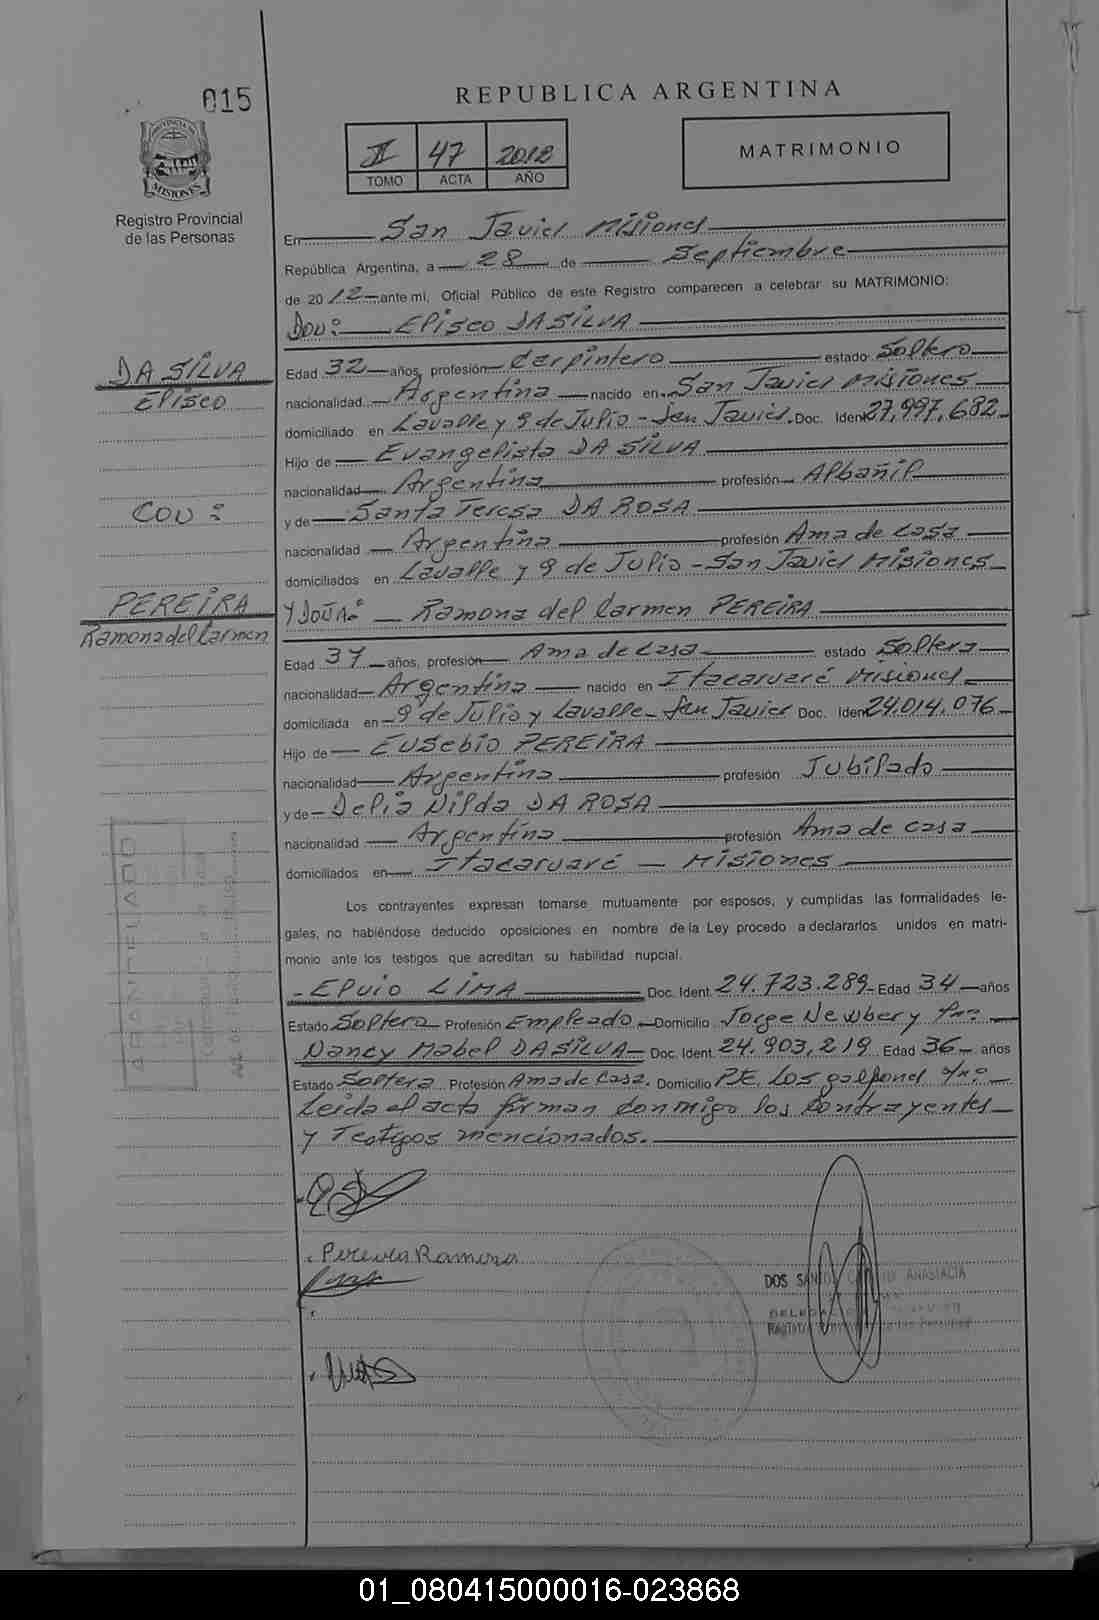 015
REPUBLICA ARGENTINA
PROVINCIA DE
MISIONES
Registro Provincial
de las Personas
II 47 2012
TOMO ACTA AÑO
MATRIMONIO
En San Javier Misiones
República Argentina, a 28 de Septiembre
de 2012 ante mi, Oficial Público de este Registro comparecen a celebrar su MATRIMONIO:
DON: Eliseo DA SILVA
DA SILVA
Eliseo
CON:
PEREIRA
Ramona del Carmen
Edad 32 años, profesión Carpintero estado Soltero
nacionalidad Argentina nacido en San Javier Misiones
domiciliado en Lavalle y 9 de Julio - San Javier. Doc. Ident 27.997.682
Hijo de Evangelista DA SILVA
nacionalidad Argentina profesión Albañil
y de Santa Teresa DA ROSA
nacionalidad Argentina profesión Ama de casa
domiciliados en Lavalle y 9 de Julio - San Javier Misiones
Y DOÑA: Ramona del Carmen PEREIRA
Edad 37 años, profesión Ama de casa estado Soltera
nacionalidad Argentina nacido en Itacaruaré Misiones
domiciliada en 9 de Julio y Lavalle - San Javier Doc. Ident 24.014.076
Hijo de Eusebio PEREIRA
nacionalidad Argentina profesión Jubilado
y de Delia Nilda DA ROSA
nacionalidad Argentina profesión Ama de casa
domiciliados en Itacaruaré - Misiones
Los contrayentes expresan tomarse mutuamente por esposos, y cumplidas las formalidades le-
gales, no habiéndose deducido oposiciones en nombre de la Ley procedo a declararlos unidos en matri-
monio ante los testigos que acreditan su habilidad nupcial.
- Elvio LIMA Doc. Ident. 24.723.289 - Edad 34 años
Estado Soltero Profesión Empleado Domicilio Jorge Newbery
Nancy Mabel DA SILVA - Doc. Ident. 24.903.219 Edad 36 años
Estado Soltera Profesión Ama de Casa. Domicilio Pje. Los galpones
Leída el acta firman conmigo los Contrayentes
y Testigos mencionados.
Pereira Ramona
DOS SANTOS ANASTACIA
01_080415000016-023868